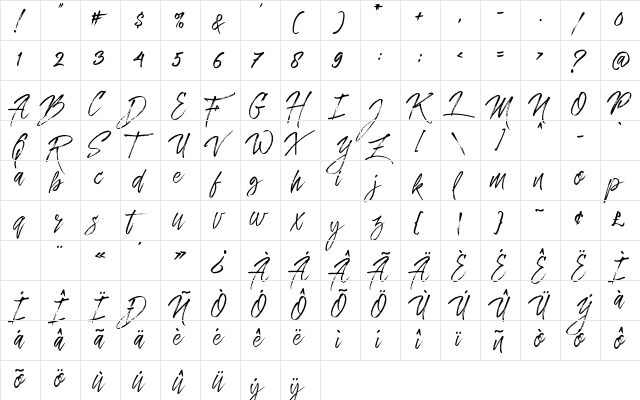 ! " # $ % & ' ( ) * + , - . / 0
1 2 3 4 5 6 7 8 9 : ; < = > ? @
A B C D E F G H I J K L M N O P
Q R S T U V W X Y Z [ \ ] ^ _ `
a b c d e f g h i j k l m n o p
q r s t u v w x y z { | } ~ ¢ £
¨ « ´ » ¿ À Á Â Ã Ä È É Ê Ë Ì
Í Î Ï Ð Ñ Ò Ó Ô Õ Ö Ù Ú Û Ü Ý à
á â ã ä è é ê ë ì í î ï ñ ò ó ô
õ ö ù ú û ü ý ÿ